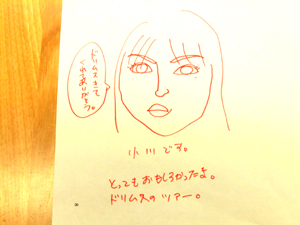 ドリムスきて
くれてありがとう。
小川です。
とってもおもしろかったよ。
ドリム久のツアー。